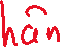 hân